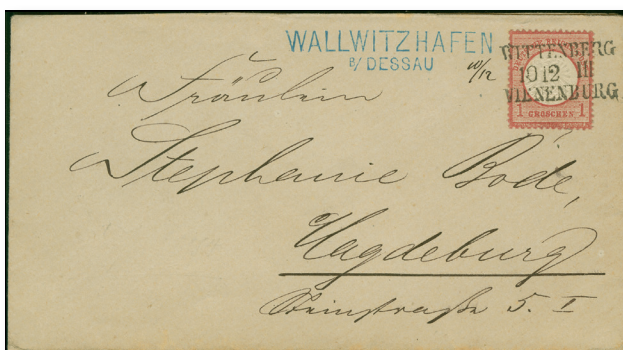 WALLWITZHAFEN
B/ DESSAU
10/12
WITTENBERG
10 12 III
VIENENBURG
1 GROSCHEN 1
Fräulein
Stephanie Bode,
Magdeburg
Steinstraße 5. I